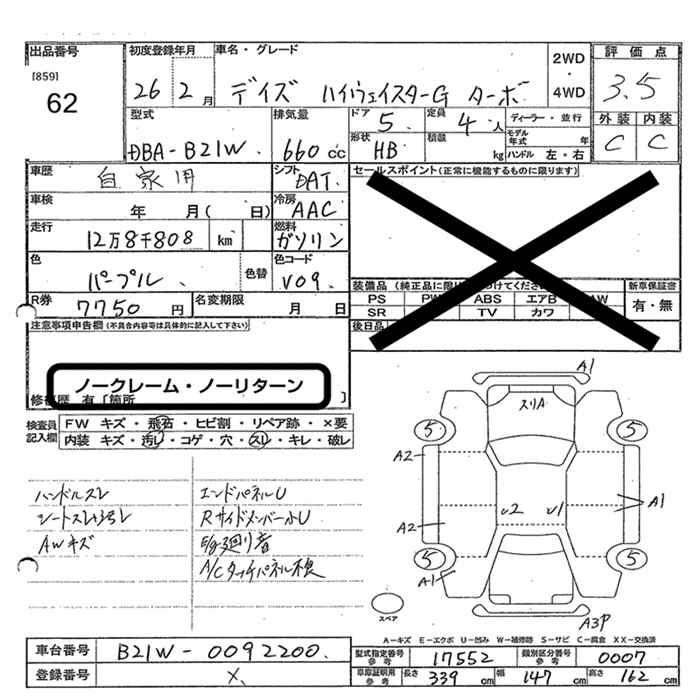 出品番号
[859]
62
初度登録年月
26 2月
車名・グレード
デイズ ハイウェイスターG ターボ
2WD
・
4WD
評価点
3.5
外装 内装
C C
型式
DBA-B21W
排気量
660cc
ドア
5
定員
4人
形状
HB
積載
kg
ディーラー・並行
モデル年式 年
ハンドル 左・右
車歴
自家用
シフト
DAT
車検
年 月( 日)
冷房
AAC
走行
12万8千808 km
燃料
ガソリン
色
パープル
色替
色コード
V09
R券
7750円
名変期限
月 日
セールスポイント(正常に機能するものに限ります)
装備品(純正品に限り
つけてください
PS PW ABS エアB AW
SR TV カワ
新車保証書
有・無
後日品
注意事項申告欄(不具合内容等は具体的に記入して下さい)
ノークレーム・ノーリターン
修復歴 有〔箇所 〕
検査員記入欄
FW キズ・飛石・ヒビ割・リペア跡・×要
内装 キズ・汚レ・コゲ・穴・スレ・キレ・破レ
ハンドルスレ
シートスレ
AWキズ
エンドパネルU
Rサイドメンバー小U
A/Cタッチパネル不良
A1
スリA
5 5
A2
A1
U2 U1
A2
5 5
A1
A3P
スペア
A-キズ E-エクボ U-凹み W-補修跡 S-サビ C-腐食 XX-交換済
車台番号
B21W-0092200
登録番号
X
型式指定番号
参考
17552
類別区分番号
参考
0007
車庫証明用
参考
長さ 339cm
幅 147cm
高さ 162cm